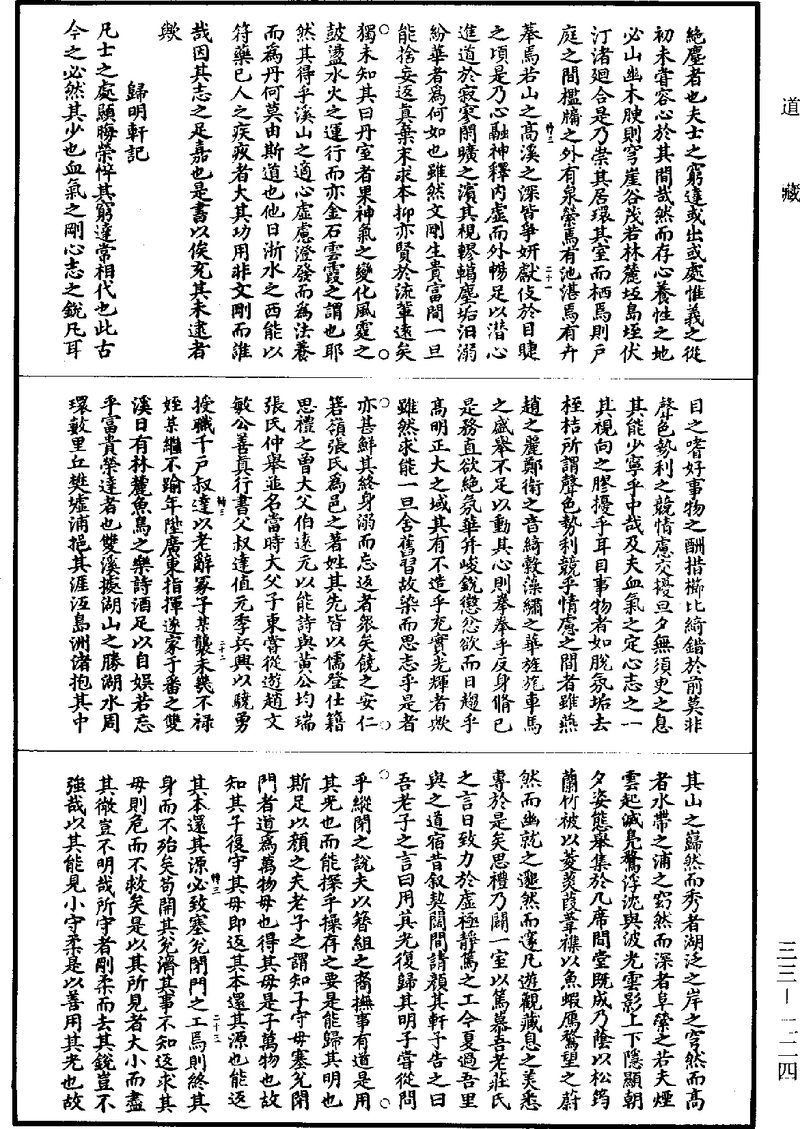 道藏
絕塵者也夫士之窮達或出或處惟義之從
初未嘗容心於其間哉然而存心養性之地
必山幽木腴則穹崖谷茂若林麓垣島垤伏
汀渚廻合是乃崇其居環其室而栖焉則戶
庭之間檻牖之外有泉縈焉有池湛焉有卉
蓁焉若山之高溪之深皆爭妍獻伎於目睫
之頃是乃心融神釋內虛而外暢足以潛心
進道於寂寥閴曠之濱其視轇轕塵垢汨溺
紛華者為何如也雖然文剛生貴富間一旦
能捨妄返真棄末求本抑亦賢於流輩遠矣
獨未知其曰丹室者果神氣之變化風霆之
鼓盪水火之運行而亦金石雲霞之謂也耶
然其得乎溪山之適心虛慮澄發而為法養
而為丹何莫由斯道也他日浙水之西能以
符藥已人之疾疚者大其功用非文剛而誰
哉因其志之足嘉也是書以俟充其未逮者
歟
歸明軒記
凡士之處顯晦榮悴其窮達常相代也此古
今之必然其少也血氣之剛心志之銳凡耳
目之嗜好事物之酬措櫛比綺錯於前莫非
聲色勢利之競情慮交擾旦夕無須臾之息
其能少寧乎中哉及夫血氣之定心志之一
其視向之膠擾乎耳目事物者如脫氛垢去
桎梏所謂聲色勢利競乎情慮之間者雖燕
趙之麗鄭衛之音綺縠藻繡之華旌旄車馬
之盛舉不足以動其心則拳拳乎反身脩己
是務直欲絕氛華弁峻銳懲忿欲而日趨乎
高明正大之域其有不造乎充實光輝者歟
雖然求能一旦舍舊習故染而思志乎是者
亦甚鮮其終身溺而忘返者衆矣饒之安仁
箬嶺張氏為邑之著姓其先皆以儒登仕籍
思禮之曾大父伯遠元以能詩與黃公均瑞
張氏仲舉並名當時大父子東嘗從遊趙文
敏公善真行書父叔達值元季兵興以驍勇
授職千戶叔達以老辭冢子某襲未幾不祿
姪某繼不踰年陞廣東指揮遂家于番之雙
溪日有林麓魚鳥之樂詩酒足以自娛若忘
乎富貴榮達者也雙溪據湖山之勝湖水周
環數里丘樊墟浦挹其涯沍島洲渚抱其中
其山之巋然而秀者湖泛之岸之穹然而高
者水帶之浦之窈然而深者阜縈之若夫煙
雲起滅鳧鷖浮沈與波光雲影上下隱顯朝
夕姿態舉集於几席間堂既成乃蔭以松筠
蘭竹被以菱芡葭葦襍以魚蝦鴈鶩望之蔚
然而幽就之邈然而邃凡遊觀藏息之美悉
專於是矣思禮乃闢一室以篤慕吾老莊氏
之言日致力於虛極靜篤之工今夏過吾里
與之道宿昔叙契闊間請顏其軒予告之曰
吾老子之言曰用其光復歸其明子嘗從問
乎縱閉之說夫以簪組之裔撫事有道是用
其光也而能探乎操存之要是能歸其明也
斯足以顏之夫老子之謂知子守母塞兊閉
門者道為萬物母也得其母是子萬物也故
知其子復守其母即返其本還其源也能返
其本還其源必致塞兊閉門之工焉則終其
身而不殆矣苟開其兊濟其事不知返求其
母則危而不救矣是以其所見者大小而盡
其微豈不明哉所守者剛柔而去其銳豈不
強哉以其能見小守柔是以善用其光也故
三三—二二四